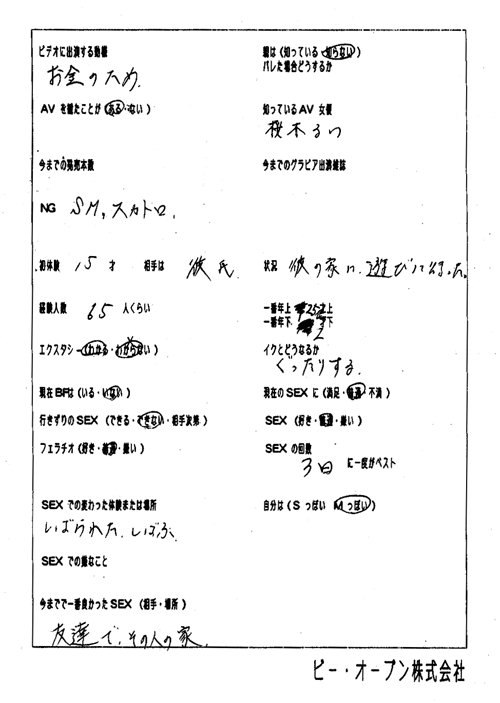 ビデオに出演する動機
お金のため.
親は (知っている・知らない)
バレた場合どうするか
AV を観たことが (ある・ない)
知っている AV 女優
桜木るい
今までの発売本数
今までのグラビア出演雑誌
NG SM, スカトロ.
初体験 15 才 相手は 彼氏
状況 彼の家に遊びに行った.
経験人数 65 人くらい
一番年上 上
一番年下 下
エクスタシー (わかる・わからない)
イクとどうなるか
ぐったりする.
現在 BFは (いる・いない)
現在の SEX に (満足・普通・不満)
行きずりの SEX (できる・できない・相手次第)
SEX (好き・普通・嫌い)
フェラチオ (好き・普通・嫌い)
SEX の回数
3日 に一度がベスト
SEX での変わった体験または場所
しばられた. しばふ.
自分は (S っぽい M っぽい)
SEX での嫌なこと
今までで一番良かった SEX (相手・場所)
友達で, その人の家.
ビー・オープン株式会社